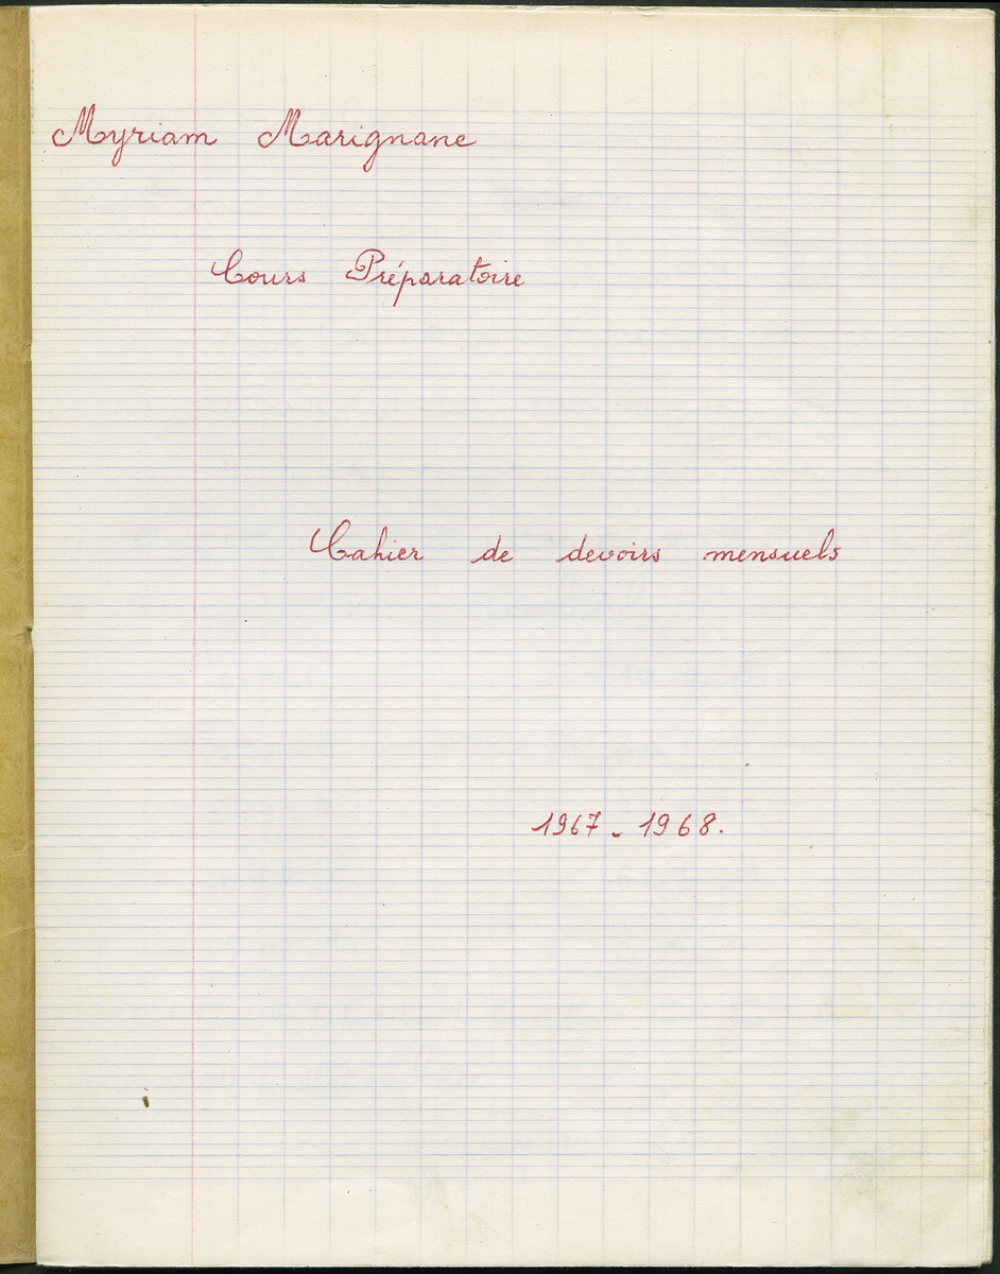 Myriam Marignane
Cours Préparatoire
Cahier de devoirs mensuels
1967 - 1968.